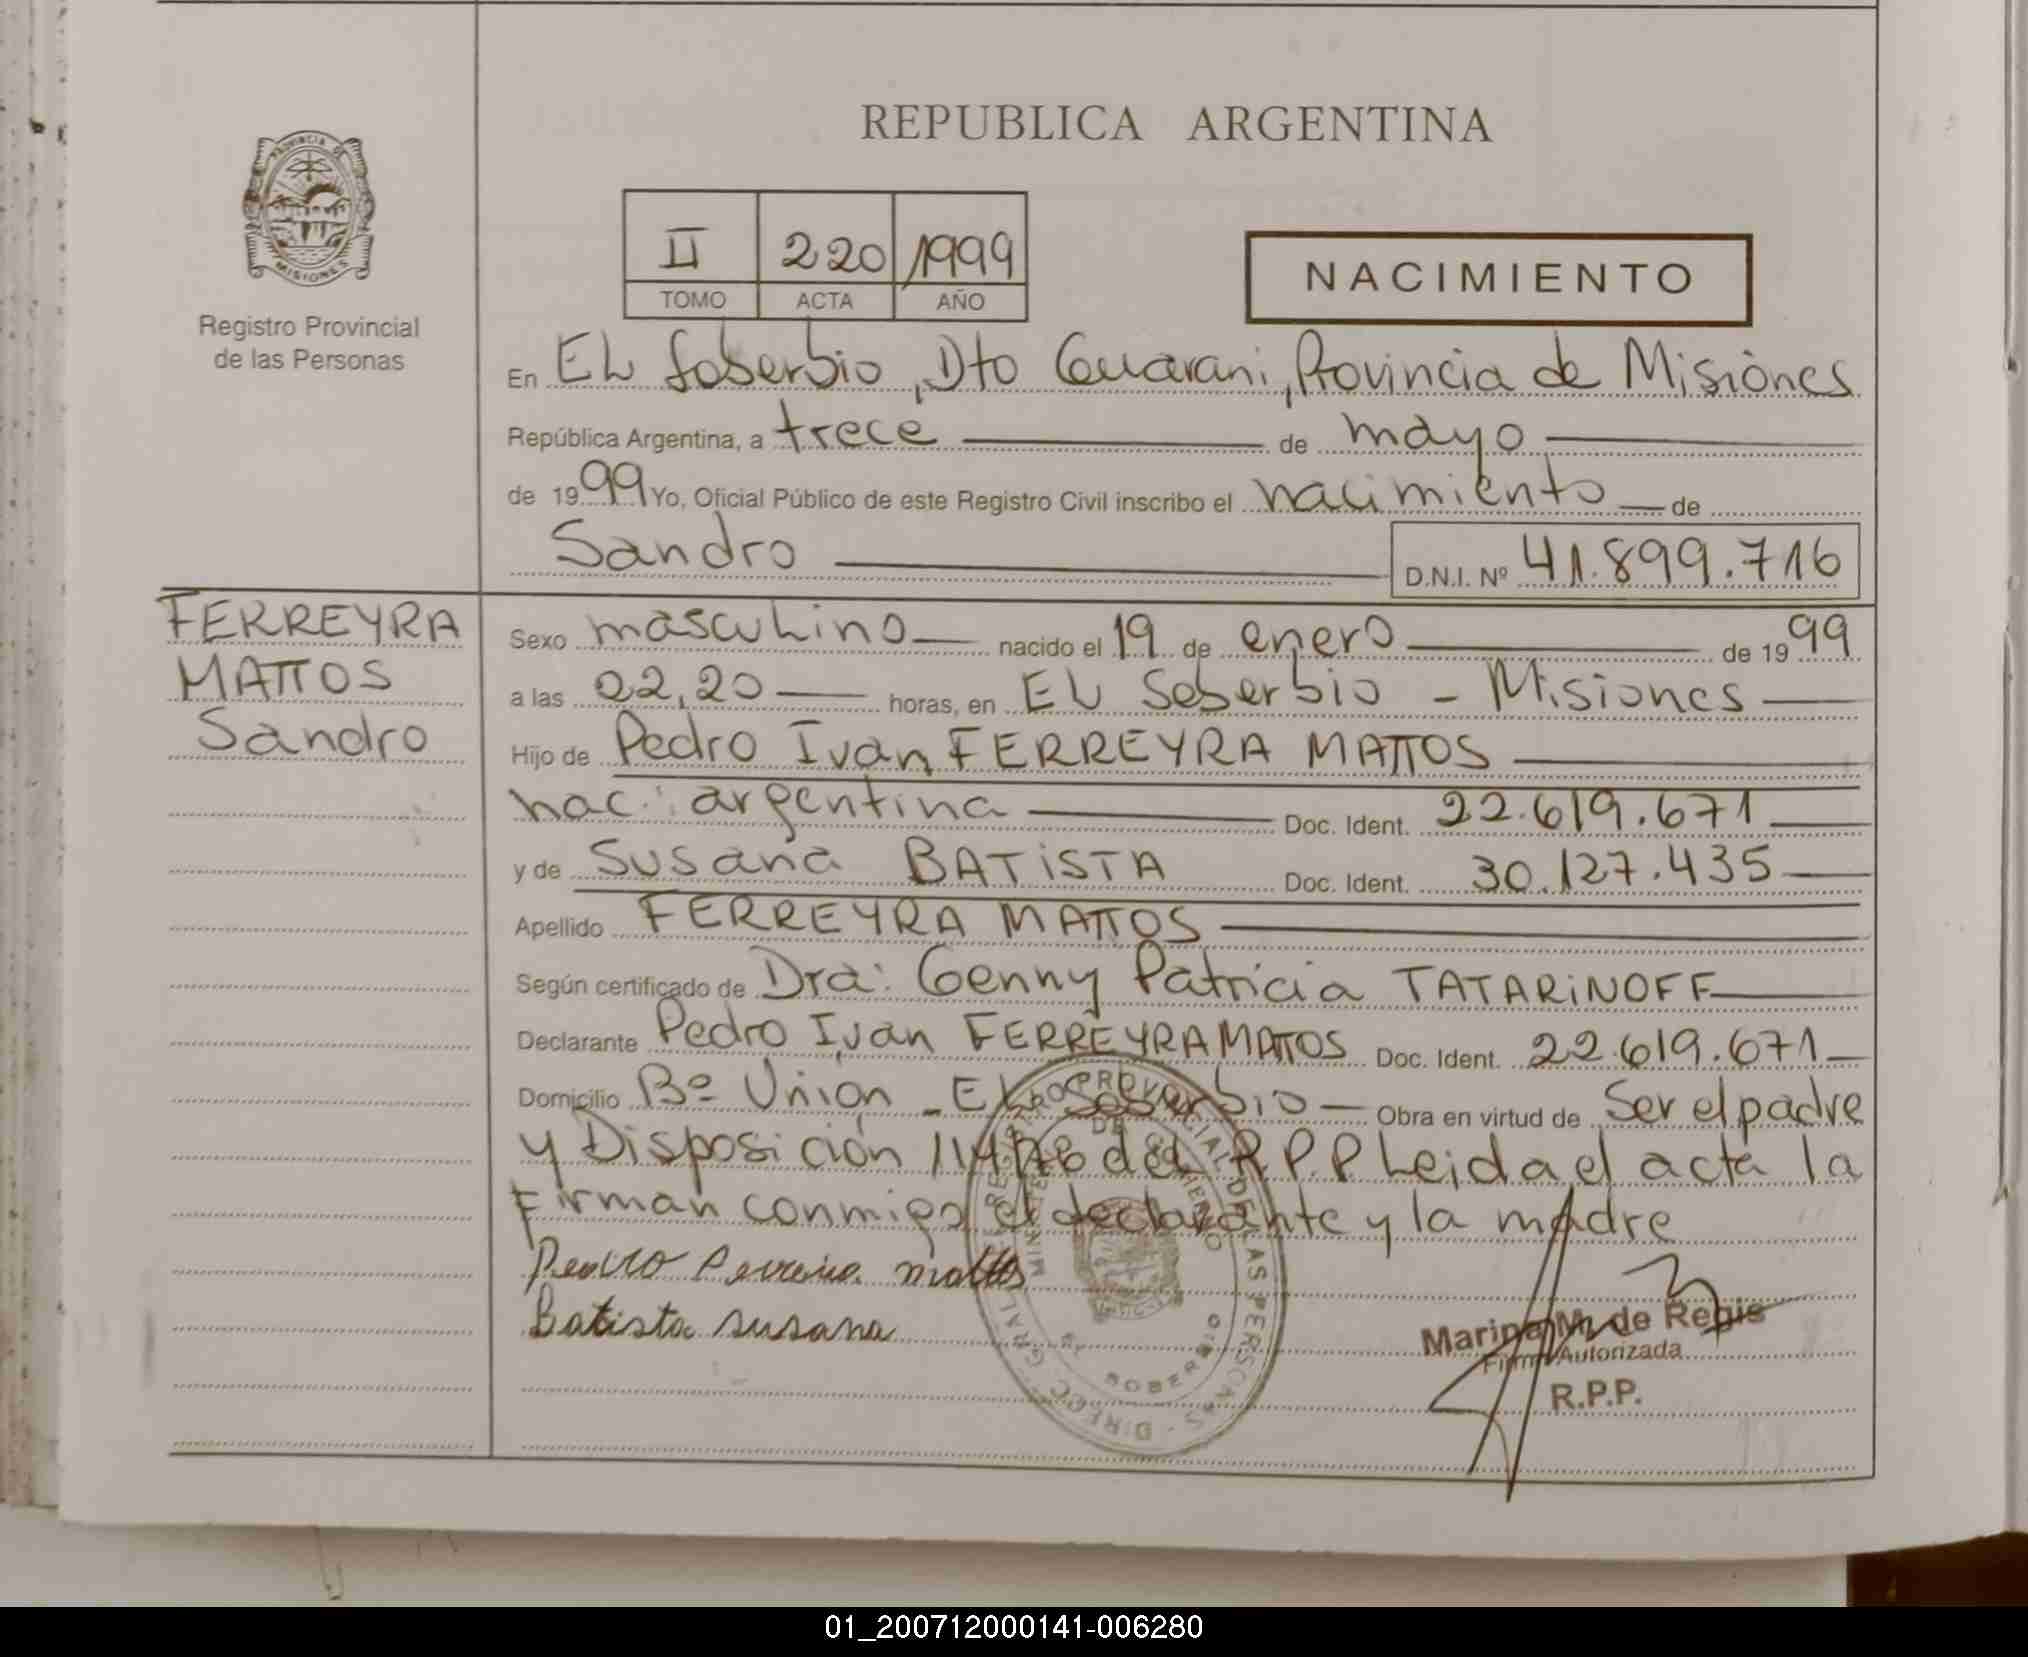 REPUBLICA ARGENTINA
PROVINCIA DE
MISIONES
Registro Provincial
de las Personas
II 220 1999
TOMO ACTA AÑO
NACIMIENTO
En EL Soberbio, Dto Guarani, Provincia de Misiones
República Argentina, a trece de mayo
de 1999 Yo, Oficial Público de este Registro Civil inscribo el nacimiento de
Sandro D.N.I. Nº 41.899.716
FERREYRA
MATTOS
Sandro
Sexo masculino nacido el 19 de enero de 1999
a las 22,20 horas, en EL Soberbio - Misiones
Hijo de Pedro Ivan FERREYRA MATTOS
nac: argentina Doc. Ident. 22.619.671
y de Susana BATiSTA Doc. Ident. 30.127.435
Apellido FERREYRA MATTOS
Según certificado de Dra: Genny Patricia TATARiNOFF
Declarante Pedro Ivan FERREYRA MATTOS Doc. Ident. 22.619.671
Domicilio Bº Unión - EL Soberbio Obra en virtud de Ser el padre
y Disposición 114/76 del R.P.P Leida el acta la
Firman conmigo el declarante y la madre
Pedro Ferreira mattos
Batista susana
Marina M. de Regis
Firma Autorizada
R.P.P.
01_200712000141-006280